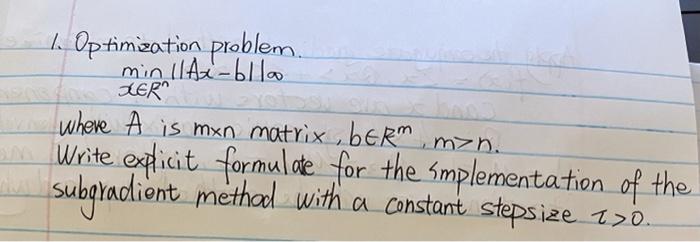 1. Optimization problem.
min ||Ax-b||∞
x∈Rⁿ
where A is m×n matrix, b∈Rᵐ, m>n.
Write explicit formulate for the implementation of the
subgradient method with a constant stepsize τ>0.